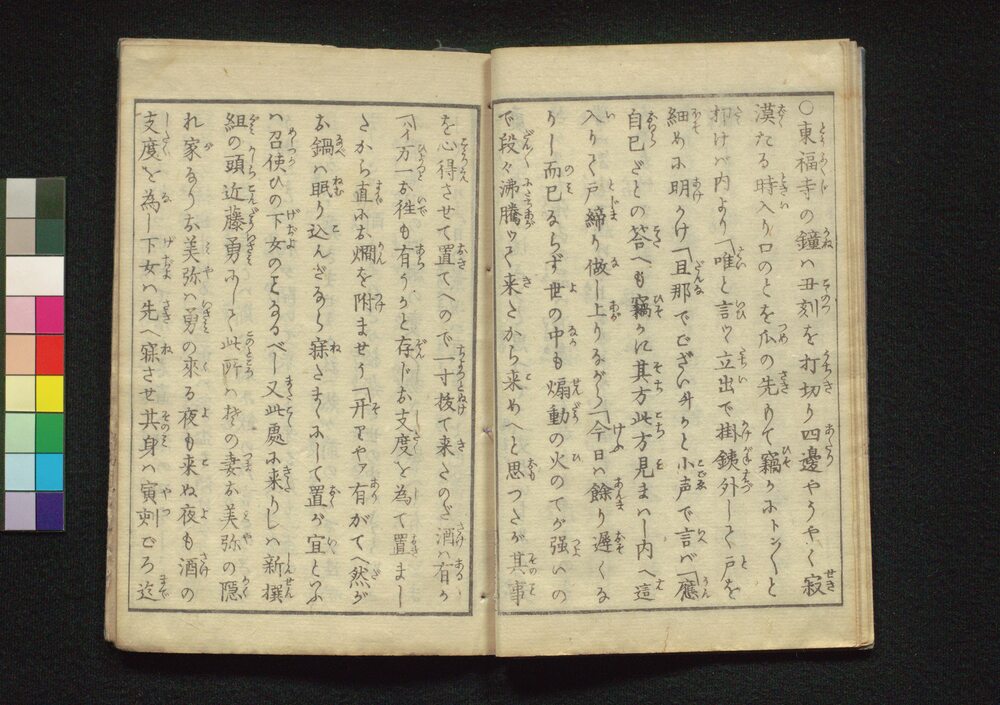 ○東福寺の鐘ハ丑刻を打切り四邊やうやく寂
漠たる時入り口のとを爪の先もて竊かにトン〳〵と
扣けバ内より「唯と言ッヽ立出で掛銕外して戸を
細めに明かけ「旦那でございますかと小声で言バ「應
自己だとの答へも竊かに其方此方見まハし内へ這
入りて戸締り做し上りながら「今日ハ餘り遲くな
りし而已ならず世の中も煽動の火のてが强いの
で段々沸騰ッて来たから来めへと思つたが其事
を心得させて置てへので一寸拔て来たのだ酒ハ有か
「ハイ万一お徃も有うかと存じお支度を為て置まし
たから直にお燗を附ませう「开りやア有がてへ然が
お鍋ハ眠り込んだなら寐たまゝにして置が宜といふ
ハ召使ひの下女の〓なるべし又此處に来りしハ新撰
組の頭近藤勇にして此所ハ其の妻お美弥の隱
れ家なりお美弥ハ勇の來る夜も来ぬ夜も酒の
支度を為し下女ハ先へ寐させ其身ハ寅刻ごろ迄